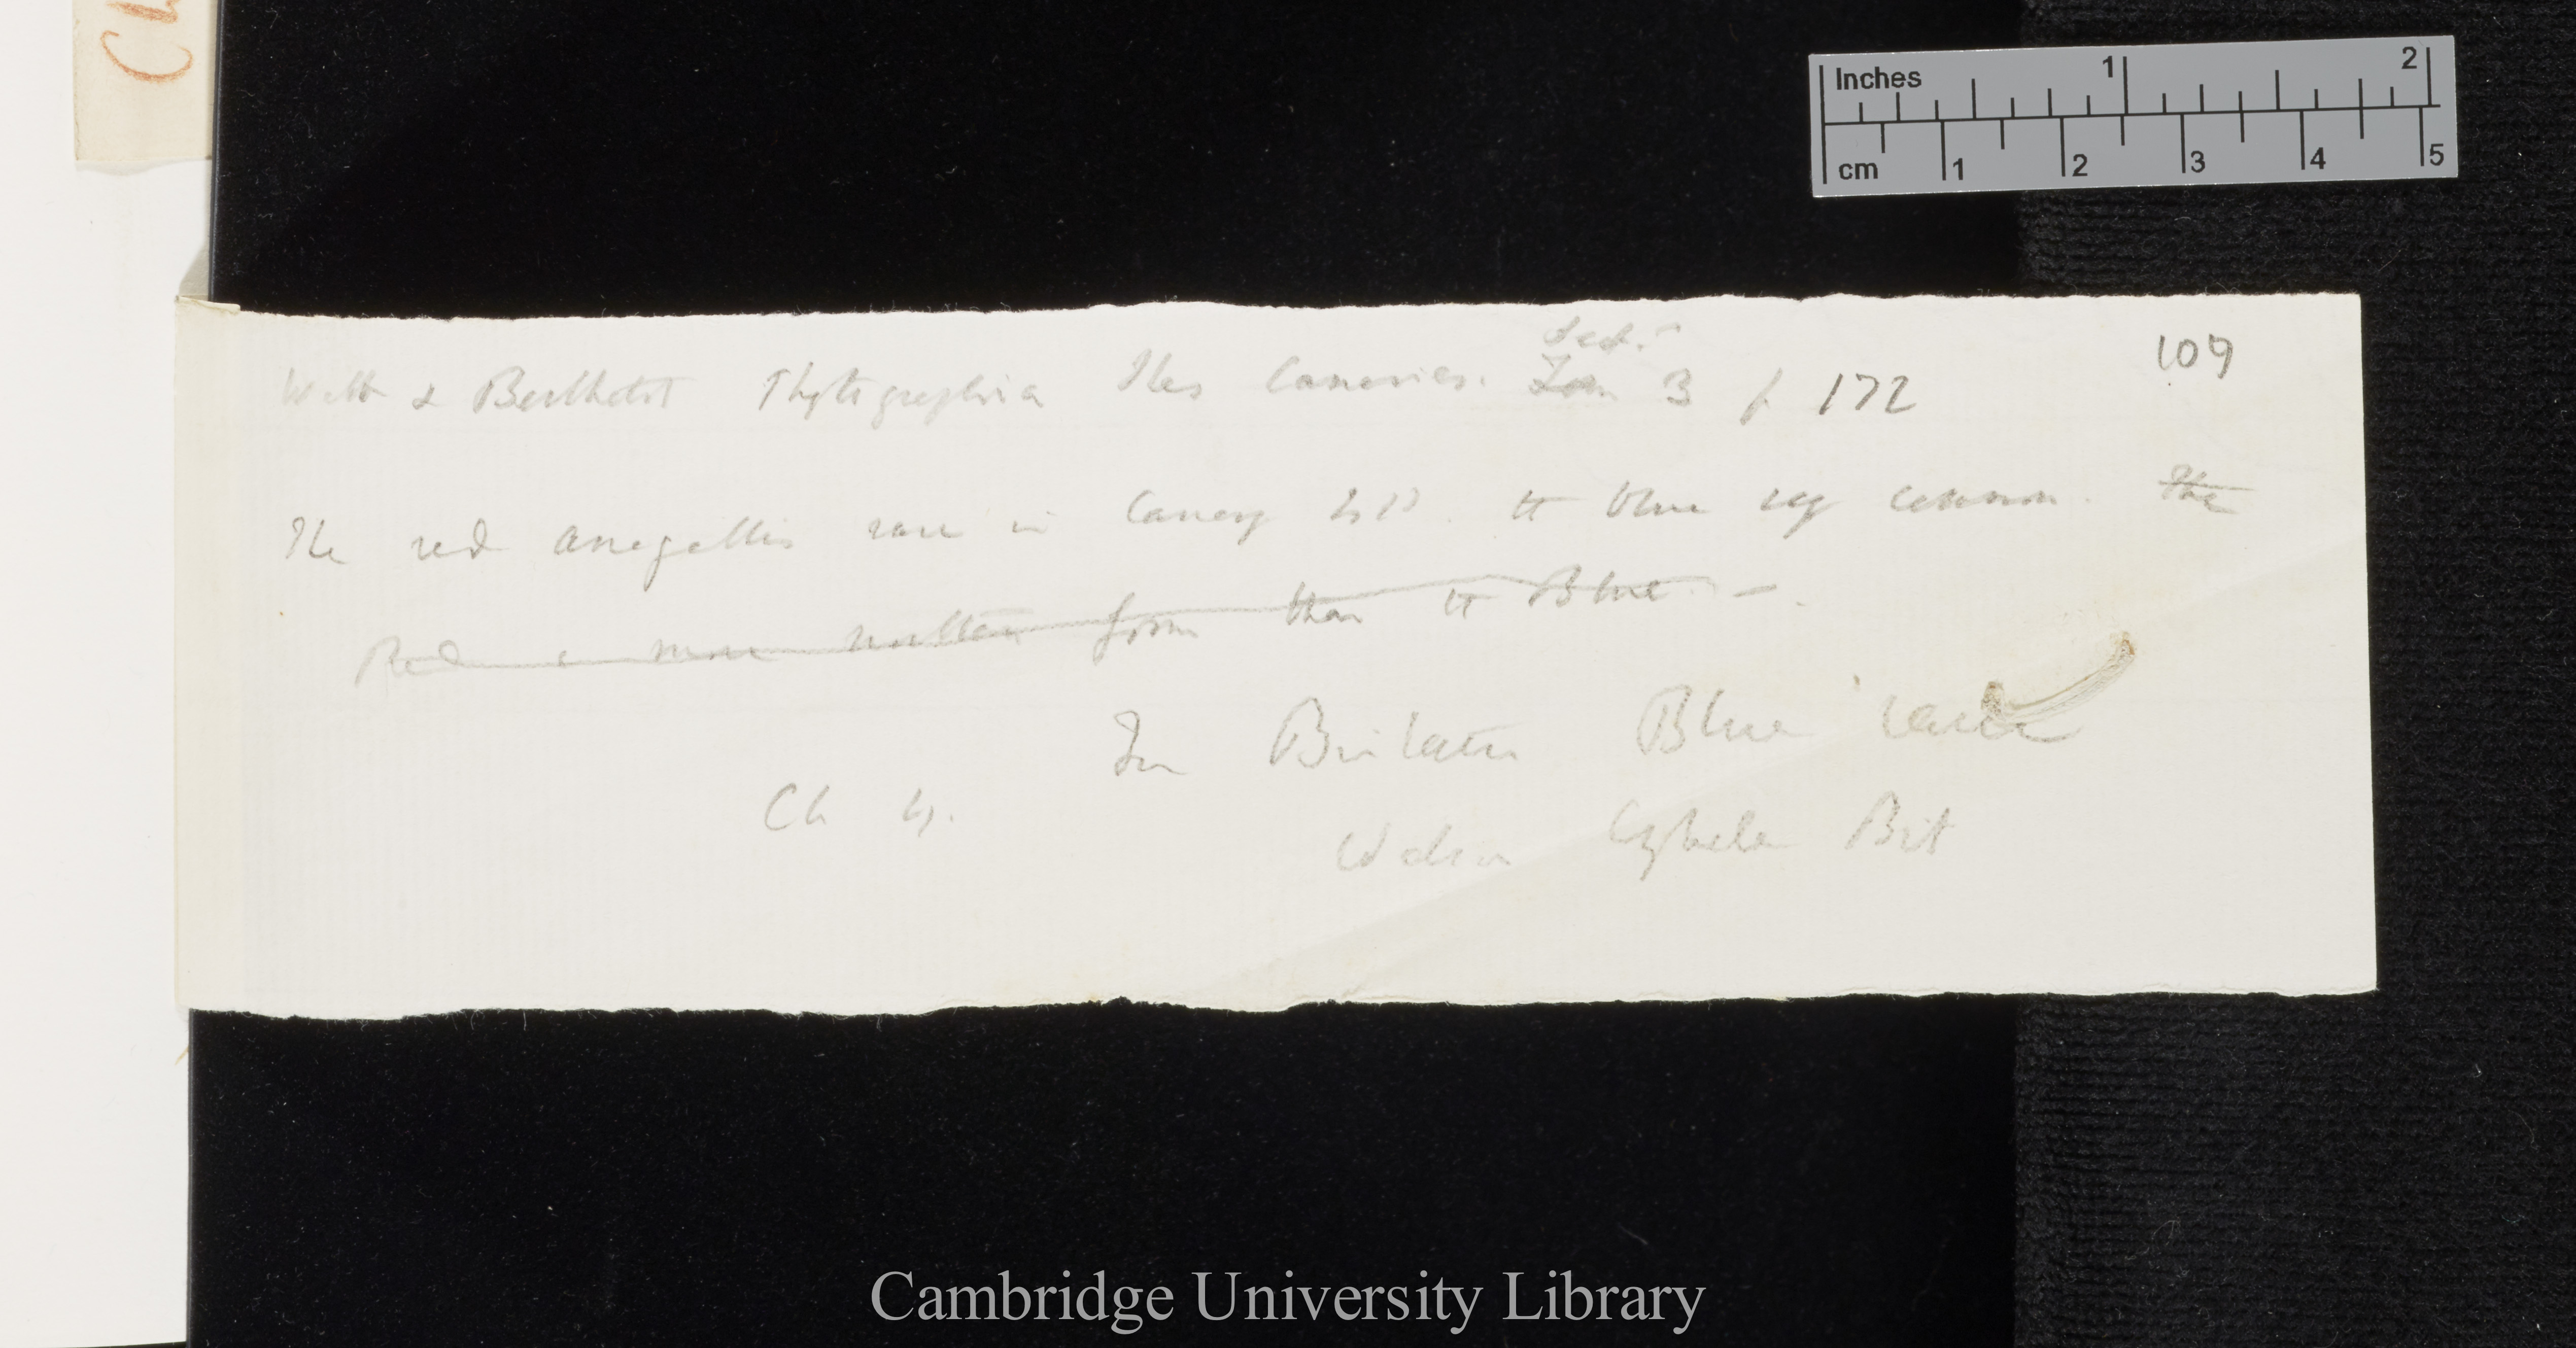 Cl
Inches 1 2
cm 1 2 3 4 5
109
Sect.
Webb & Berthelot Phytographia Iles Canaries. Tom 3 p. 172
The red anagallis rare in Canary Isld. the blue very common. The
Red a more northern form than the Blue. —.
In Britain Blue rarer
Ch 4.
Watson Cybele Brit
Cambridge University Library